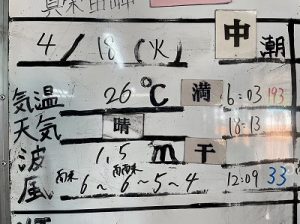 4/18(火) 中潮
気温 26℃ 満 6:03 193
天気 晴 18:13
波 1.5m 干
風 南西 6~ 南南西 6~5~4 12:09 33